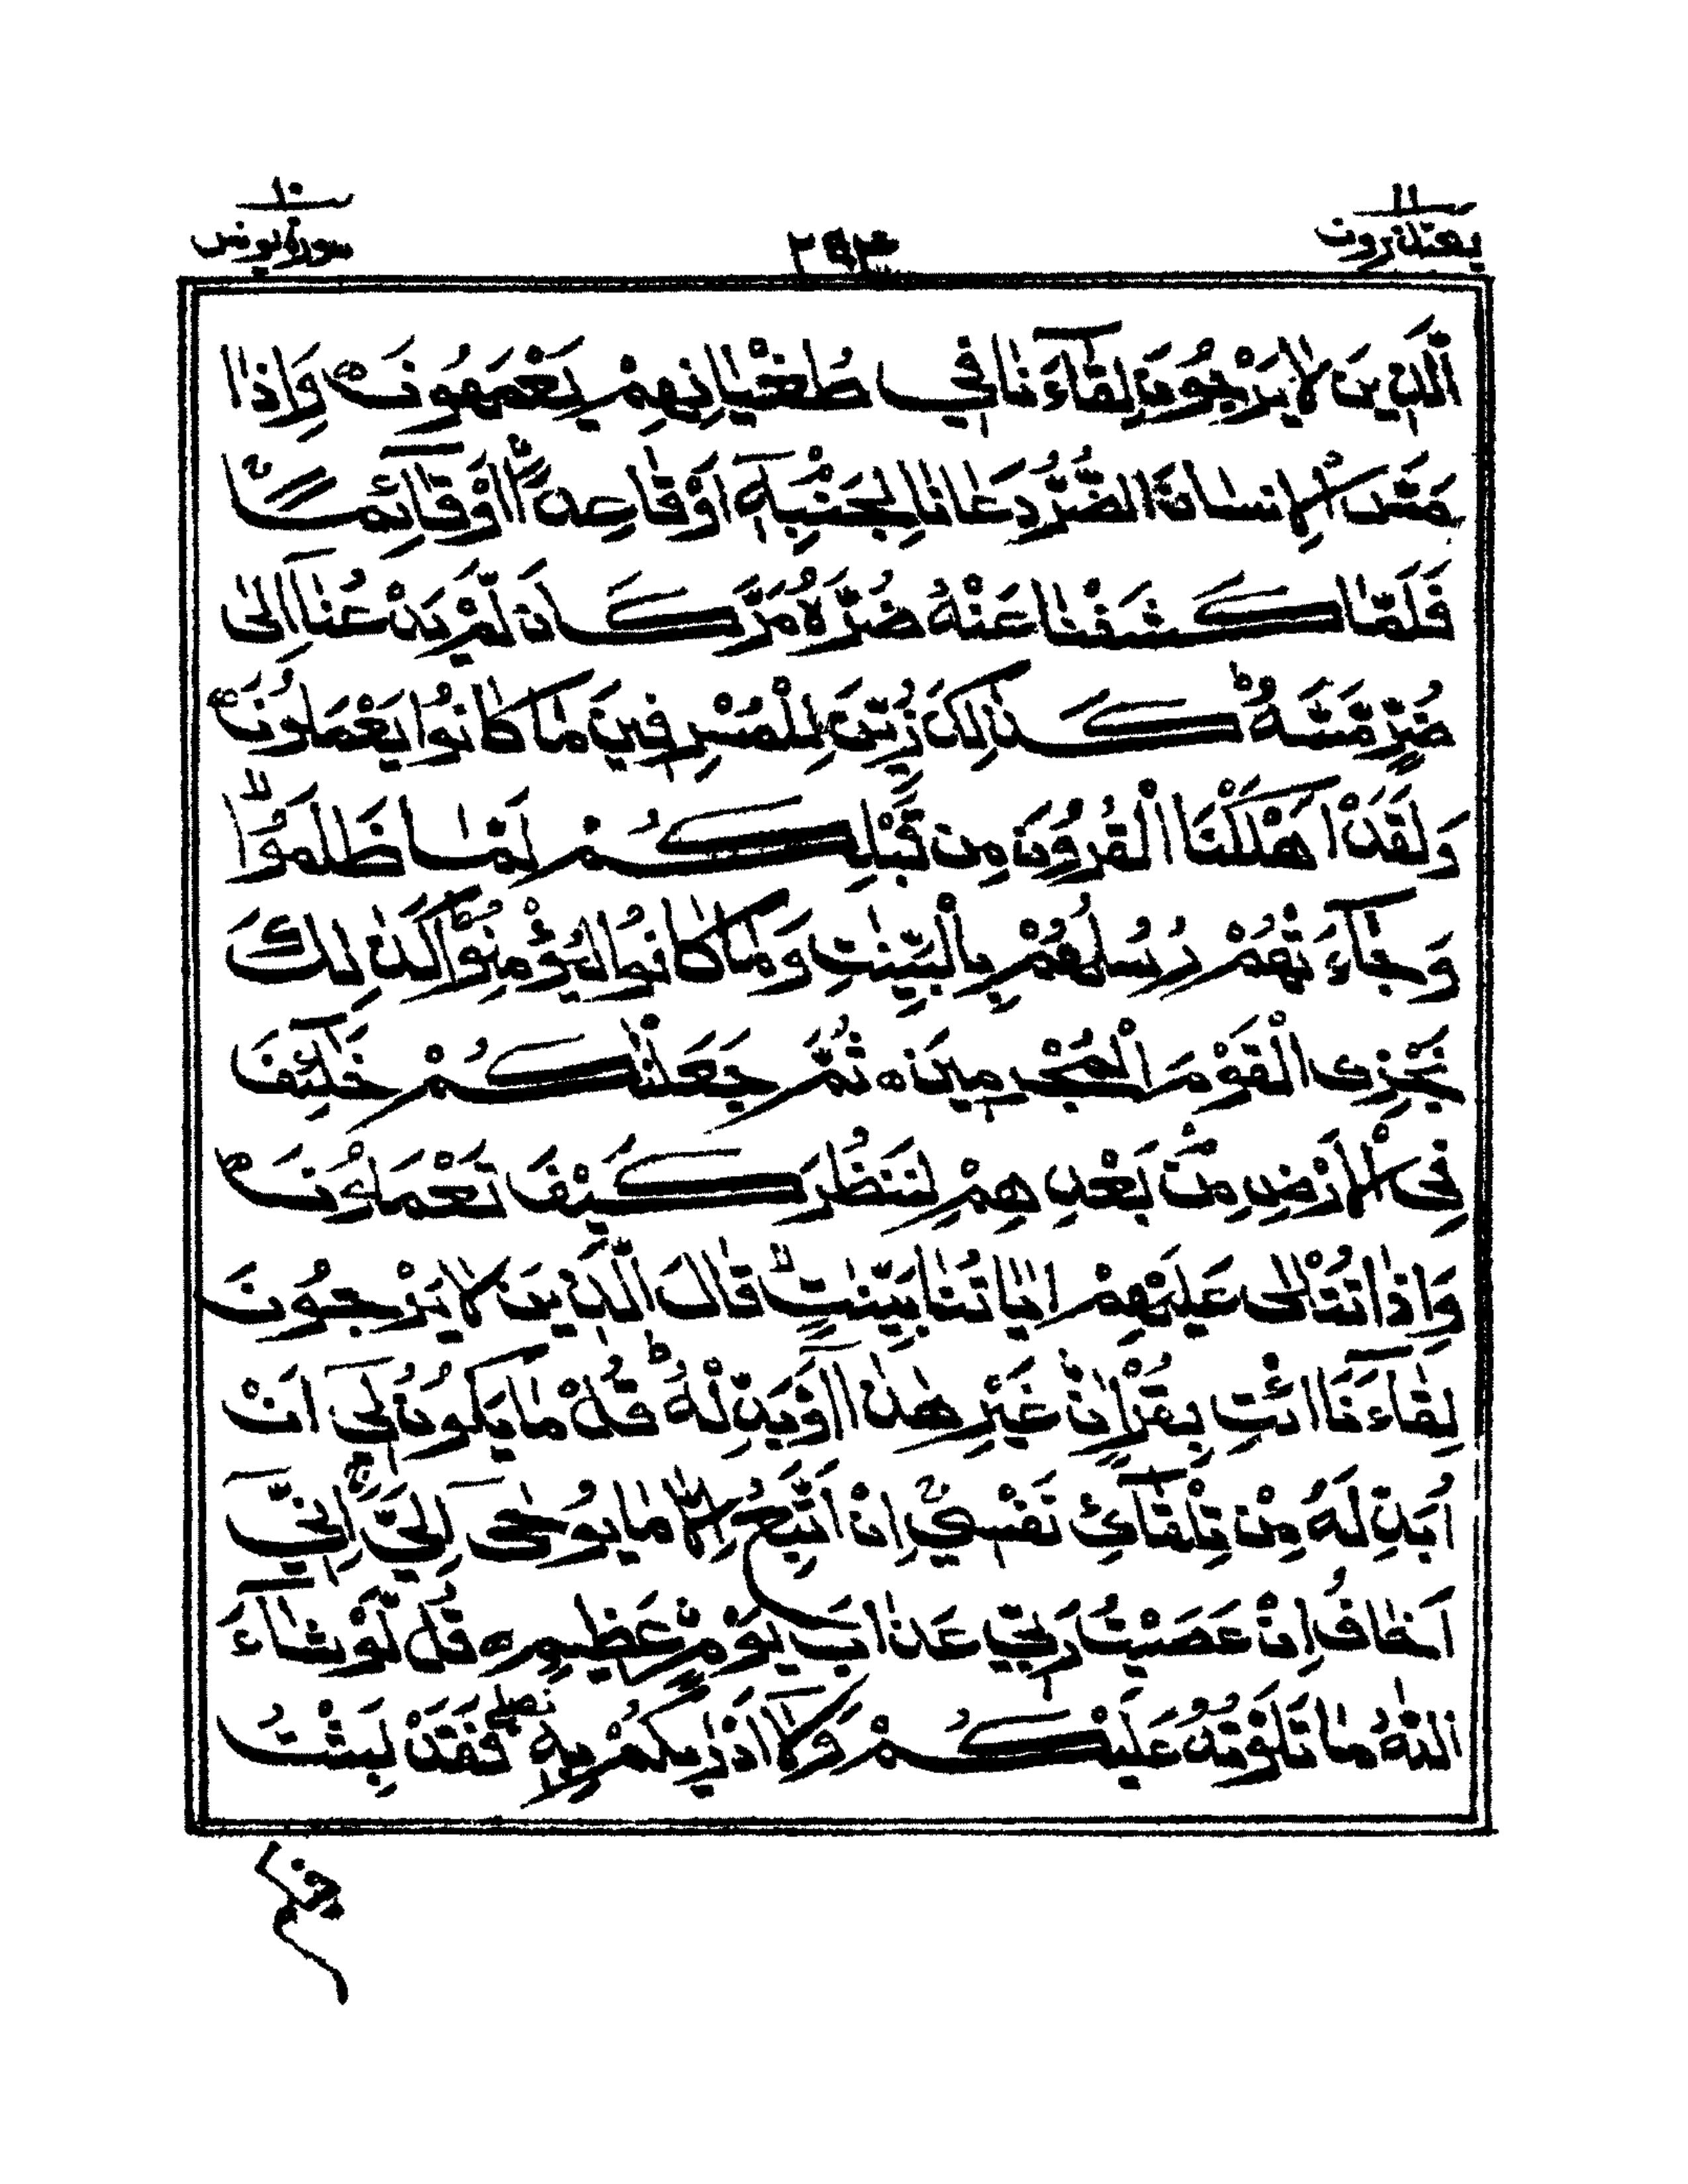 ١١
يعتذرون
٢٩٤
١٠
سورة يونس
الَّذِيْنَ لَا يَرْجُوْنَ لِقَآءَنَا فِيْ طُغْيَانِهِمْ يَعْمَهُوْنَ ۝ وَاِذَا
مَسَّ الْاِنْسَانَ الضُّرُّ دَعَانَا لِجَنْبِهٖٓ اَوْ قَاعِدًا اَوْ قَآئِمًا ۚ
فَلَمَّا كَشَفْنَا عَنْهُ ضُرَّهٗ مَرَّ كَاَنْ لَّمْ يَدْعُنَآ اِلٰى
ضُرٍّ مَّسَّهٗ ؕ كَذٰلِكَ زُيِّنَ لِلْمُسْرِفِيْنَ مَا كَانُوْا يَعْمَلُوْنَ ۝
وَلَقَدْ اَهْلَكْنَا الْقُرُوْنَ مِنْ قَبْلِكُمْ لَمَّا ظَلَمُوْا ۙ
وَجَآءَتْهُمْ رُسُلُهُمْ بِالْبَيِّنٰتِ وَمَا كَانُوْا لِيُؤْمِنُوْا ؕ كَذٰلِكَ
نَجْزِى الْقَوْمَ الْمُجْرِمِيْنَ ۝ ثُمَّ جَعَلْنٰكُمْ خَلٰٓئِفَ
فِى الْاَرْضِ مِنْۢ بَعْدِهِمْ لِنَنْظُرَ كَيْفَ تَعْمَلُوْنَ ۝
وَاِذَا تُتْلٰى عَلَيْهِمْ اٰيَاتُنَا بَيِّنٰتٍ ۙ قَالَ الَّذِيْنَ لَا يَرْجُوْنَ
لِقَآءَنَا ائْتِ بِقُرْاٰنٍ غَيْرِ هٰذَآ اَوْ بَدِّلْهُ ؕ قُلْ مَا يَكُوْنُ لِيْٓ اَنْ
اُبَدِّلَهٗ مِنْ تِلْقَآئِ نَفْسِيْ ۚ اِنْ اَتَّبِعُ اِلَّا مَا يُوْحٰٓى اِلَيَّ ۚ اِنِّيْٓ
اَخَافُ اِنْ عَصَيْتُ رَبِّيْ عَذَابَ يَوْمٍ عَظِيْمٍ ۝ قُلْ لَّوْ شَآءَ
اللّٰهُ مَا تَلَوْتُهٗ عَلَيْكُمْ وَلَآ اَدْرٰىكُمْ بِهٖ ۖ فَقَدْ لَبِثْتُ
فيكم